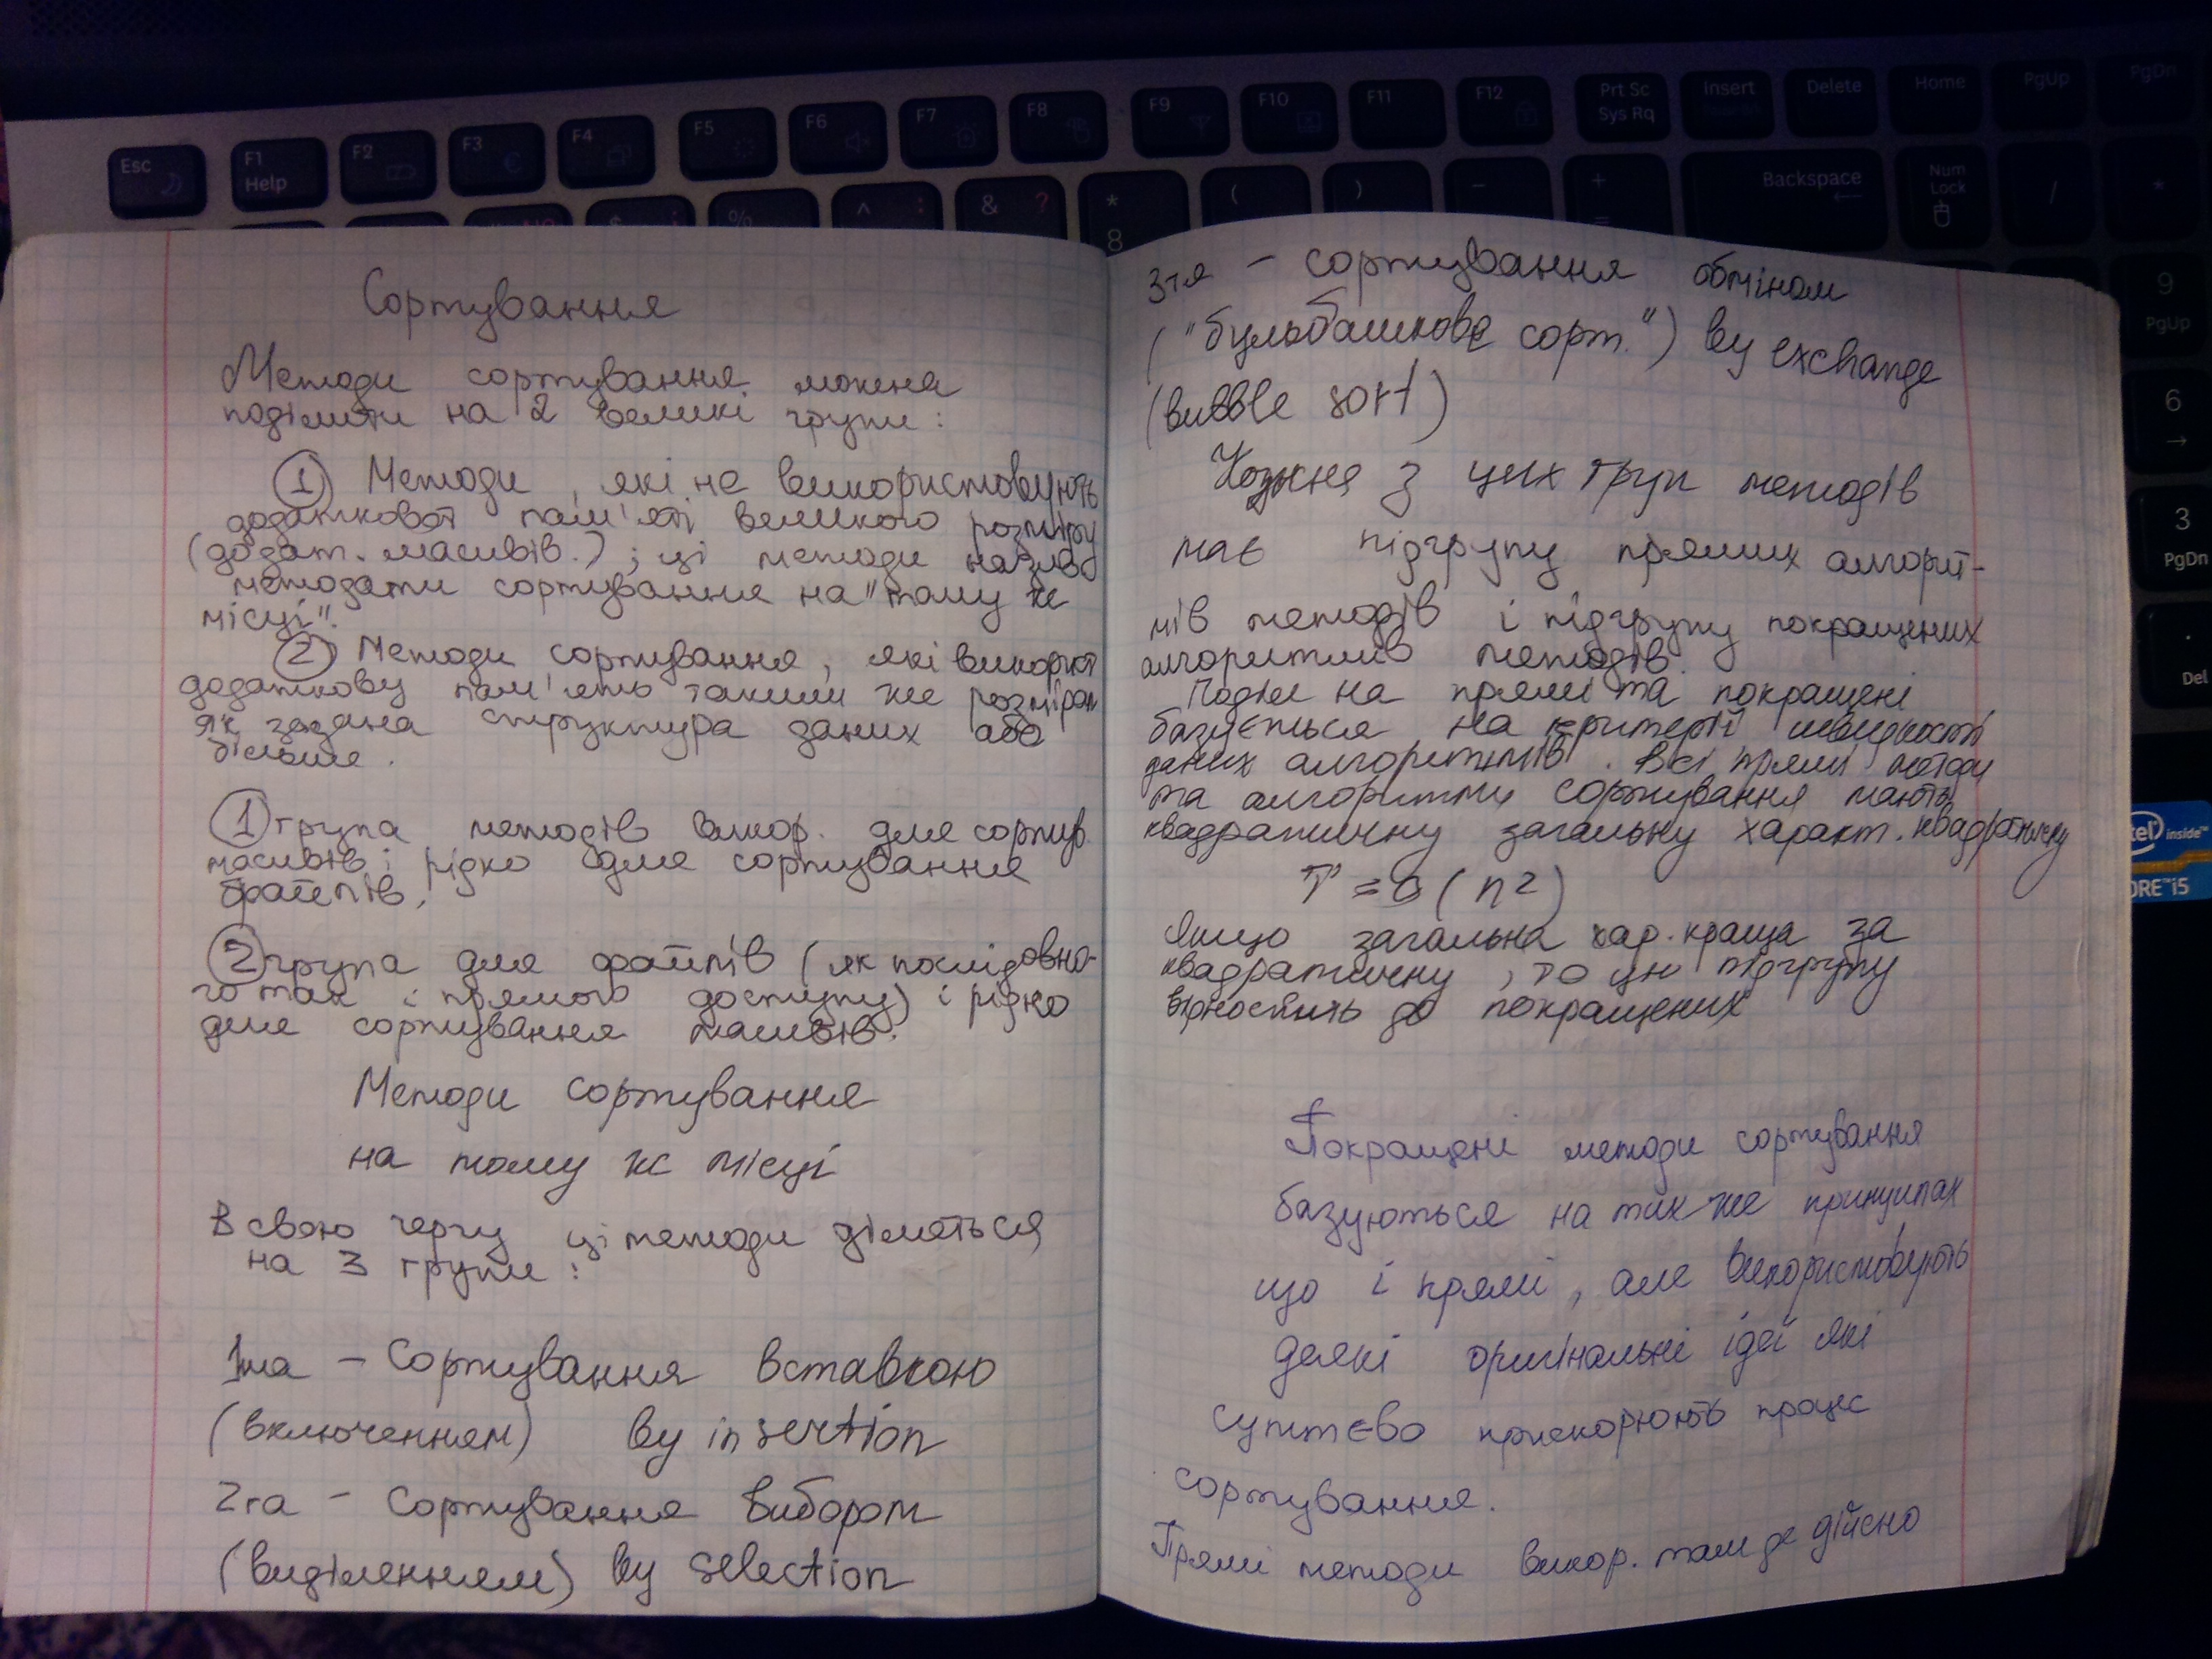 Сортування
Методи сортування можна
поділити на 2 великі групи:
1 Методи, які не використовують
додаткової пам'яті великого розміру
(додат. масивів.); ці методи назив
методами сортування на "тому же
місці".
2 Методи сортування, які використ
додаткову пам'ять такими же розмірам
як задана структура даних або
більше.
1 група методів викор. для сортув.
масивів і рідко для сортування
файлів.
2 група для файлів (як послідовно-
го так і прямого доступу) і рідко
для сортування масивів.
Методи сортування
на тому же місці
В свою чергу ці методи діляться
на 3 групи:
1ша – Сортування вставкою
(включенням) by insertion
2га – Сортування вибором
(виділенням) by selection
3тя – сортування обміном
("бульбашкове сорт.") by exchange
(bubble sort)
Кожна з цих груп методів
має підгрупу прямих алгорит-
мів методів і підгрупу покращених
алгоритмів методів.
Поділ на прямі та покращені
базується на критерії швидкості
даних алгоритмів. Всі прямі методи
та алгоритми сортування мають
квадратичну загальну характ. квадратичну
T = O(n2)
Якщо загальна хар. краща за
квадратичну, то цю підгрупу
відносить до покращених
Покращені методи сортування
базуються на тих же принципах
що і прямі, але використовують
деякі оригінальні ідеї які
суттєво прискорюють процес
сортування.
Прямі методи викор. там де дійсно
Esc
F1
Help
F2
F3
F4
F5
F6
F7
F8
F9
F10
F11
F12
Prt Sc
Sys Rq
Insert
Delete
Home
PgUp
PgDn
$
%
^ :
& ?
*
8
(
)
–
+
=
Backspace
Num
Lock
/
*
9
PgUp
6
3
PgDn
.
Del
intel inside™
CORE™ i5